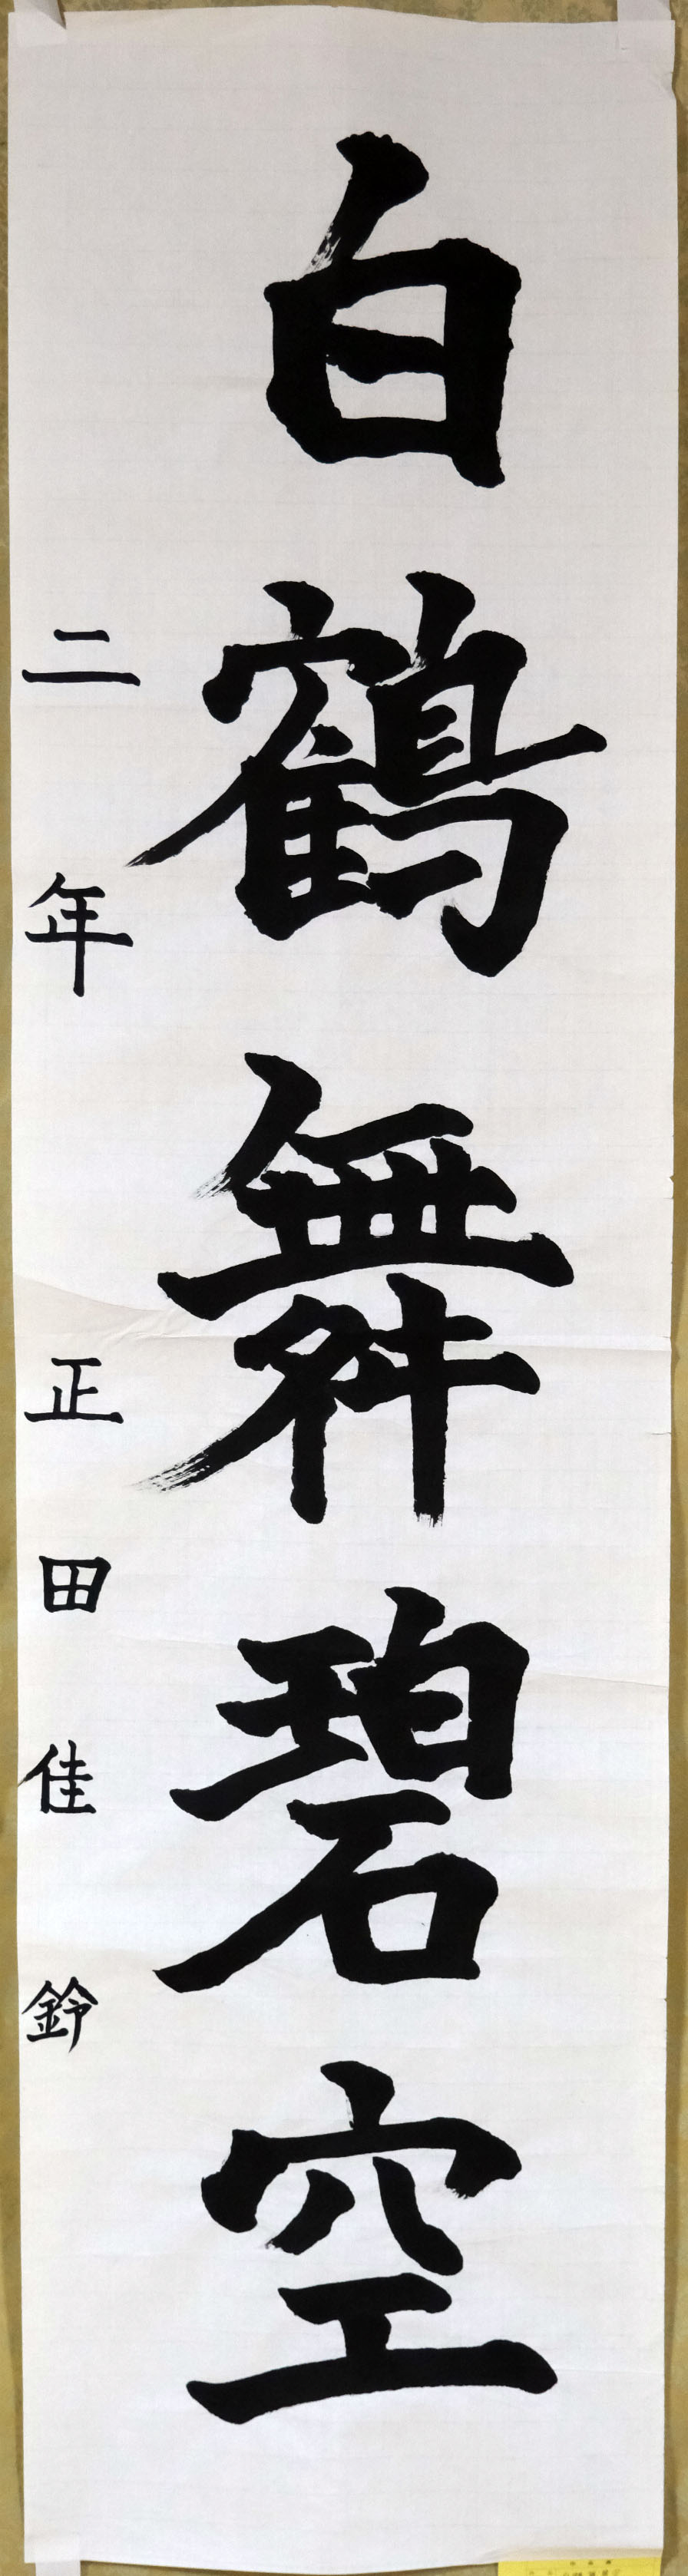 白鶴舞碧空
二年 正田佳鈴